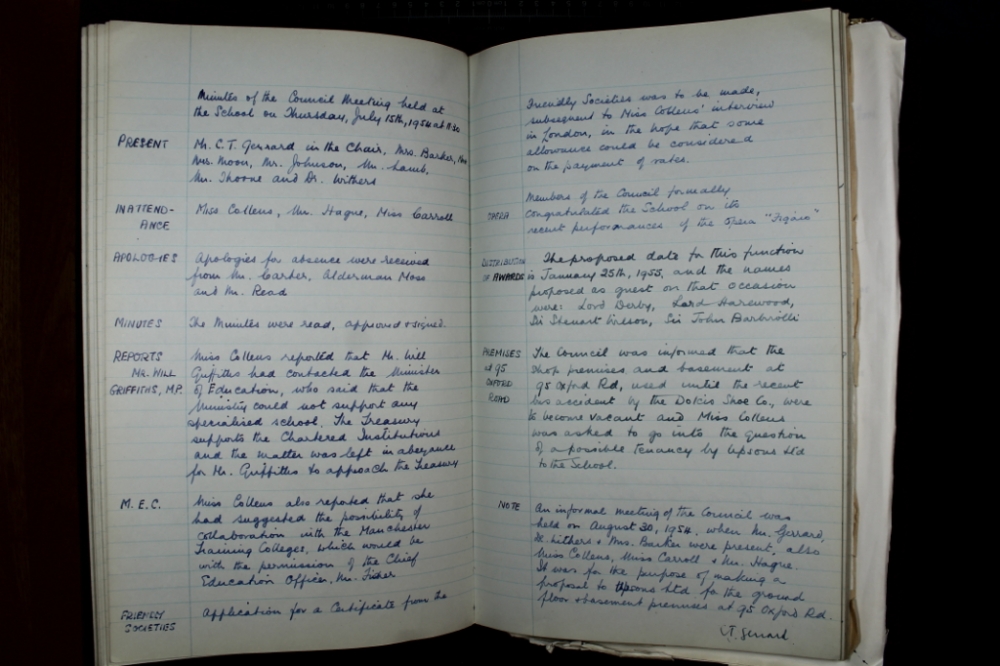 Minutes of the Council Meeting held at
the School on Thursday, July 15th, 1954 at 11.30
PRESENT Mr. C.T. Gerrard in the Chair, Mrs. Barker,
Mrs. Moon, Mr. Johnson, Mr. Lamb,
Mr. Thorne and Dr. Withers
IN ATTEND- Miss Collens, Mr. Hague, Miss Carroll
ANCE
APOLOGIES Apologies for absence were received
from Mr. Carter, Alderman Moss
and Mr. Read
MINUTES The Minutes were read, approved & signed.
REPORTS Miss Collens reported that Mr. Will
MR. WILL Griffiths had contacted the Minister
GRIFFITHS, M.P. of Education, who said that the
Ministry could not support any
specialised school. The Treasury
supports the Chartered Institutions
and the matter was left in abeyance
for Mr. Griffiths to approach the Treasury
M.E.C. Miss Collens also reported that she
had suggested the possibility of
collaboration with the Manchester
Training Colleges, which would be
with the permission of the Chief
Education Officer, Mr. Fisher
FRIENDLY Application for a Certificate from the
SOCIETIES
Friendly Societies was to be made,
subsequent to Miss Collens' interview
in London, in the hope that some
allowance could be considered
on the payment of rates.
Members of the Council formally
OPERA congratulated the School on its
recent performances of the Opera "Figaro"
DISTRIBUTION The proposed date for this function
OF AWARDS is January 25th, 1955, and the names
proposed as guest on that occasion
were: Lord Derby, Lord Harewood,
Sir Steuart Wilson, Sir John Barbirolli
PREMISES The Council was informed that the
at 95 shop premises and basement at
OXFORD 95 Oxford Rd, used until the recent
ROAD bus accident by the Dolcis Shoe Co., were
to become vacant and Miss Collens
was asked to go into the question
of a possible tenancy by Upsons Ltd
to the School.
NOTE An informal meeting of the Council was
held on August 30, 1954, when Mr. Gerrard,
Dr. Withers & Mrs. Barker were present, also
Miss Collens, Miss Carroll & Mr. Hague.
It was for the purpose of making a
proposal to Upsons Ltd for the ground
floor & basement premises at 95 Oxford Rd.
C.T. Gerrard